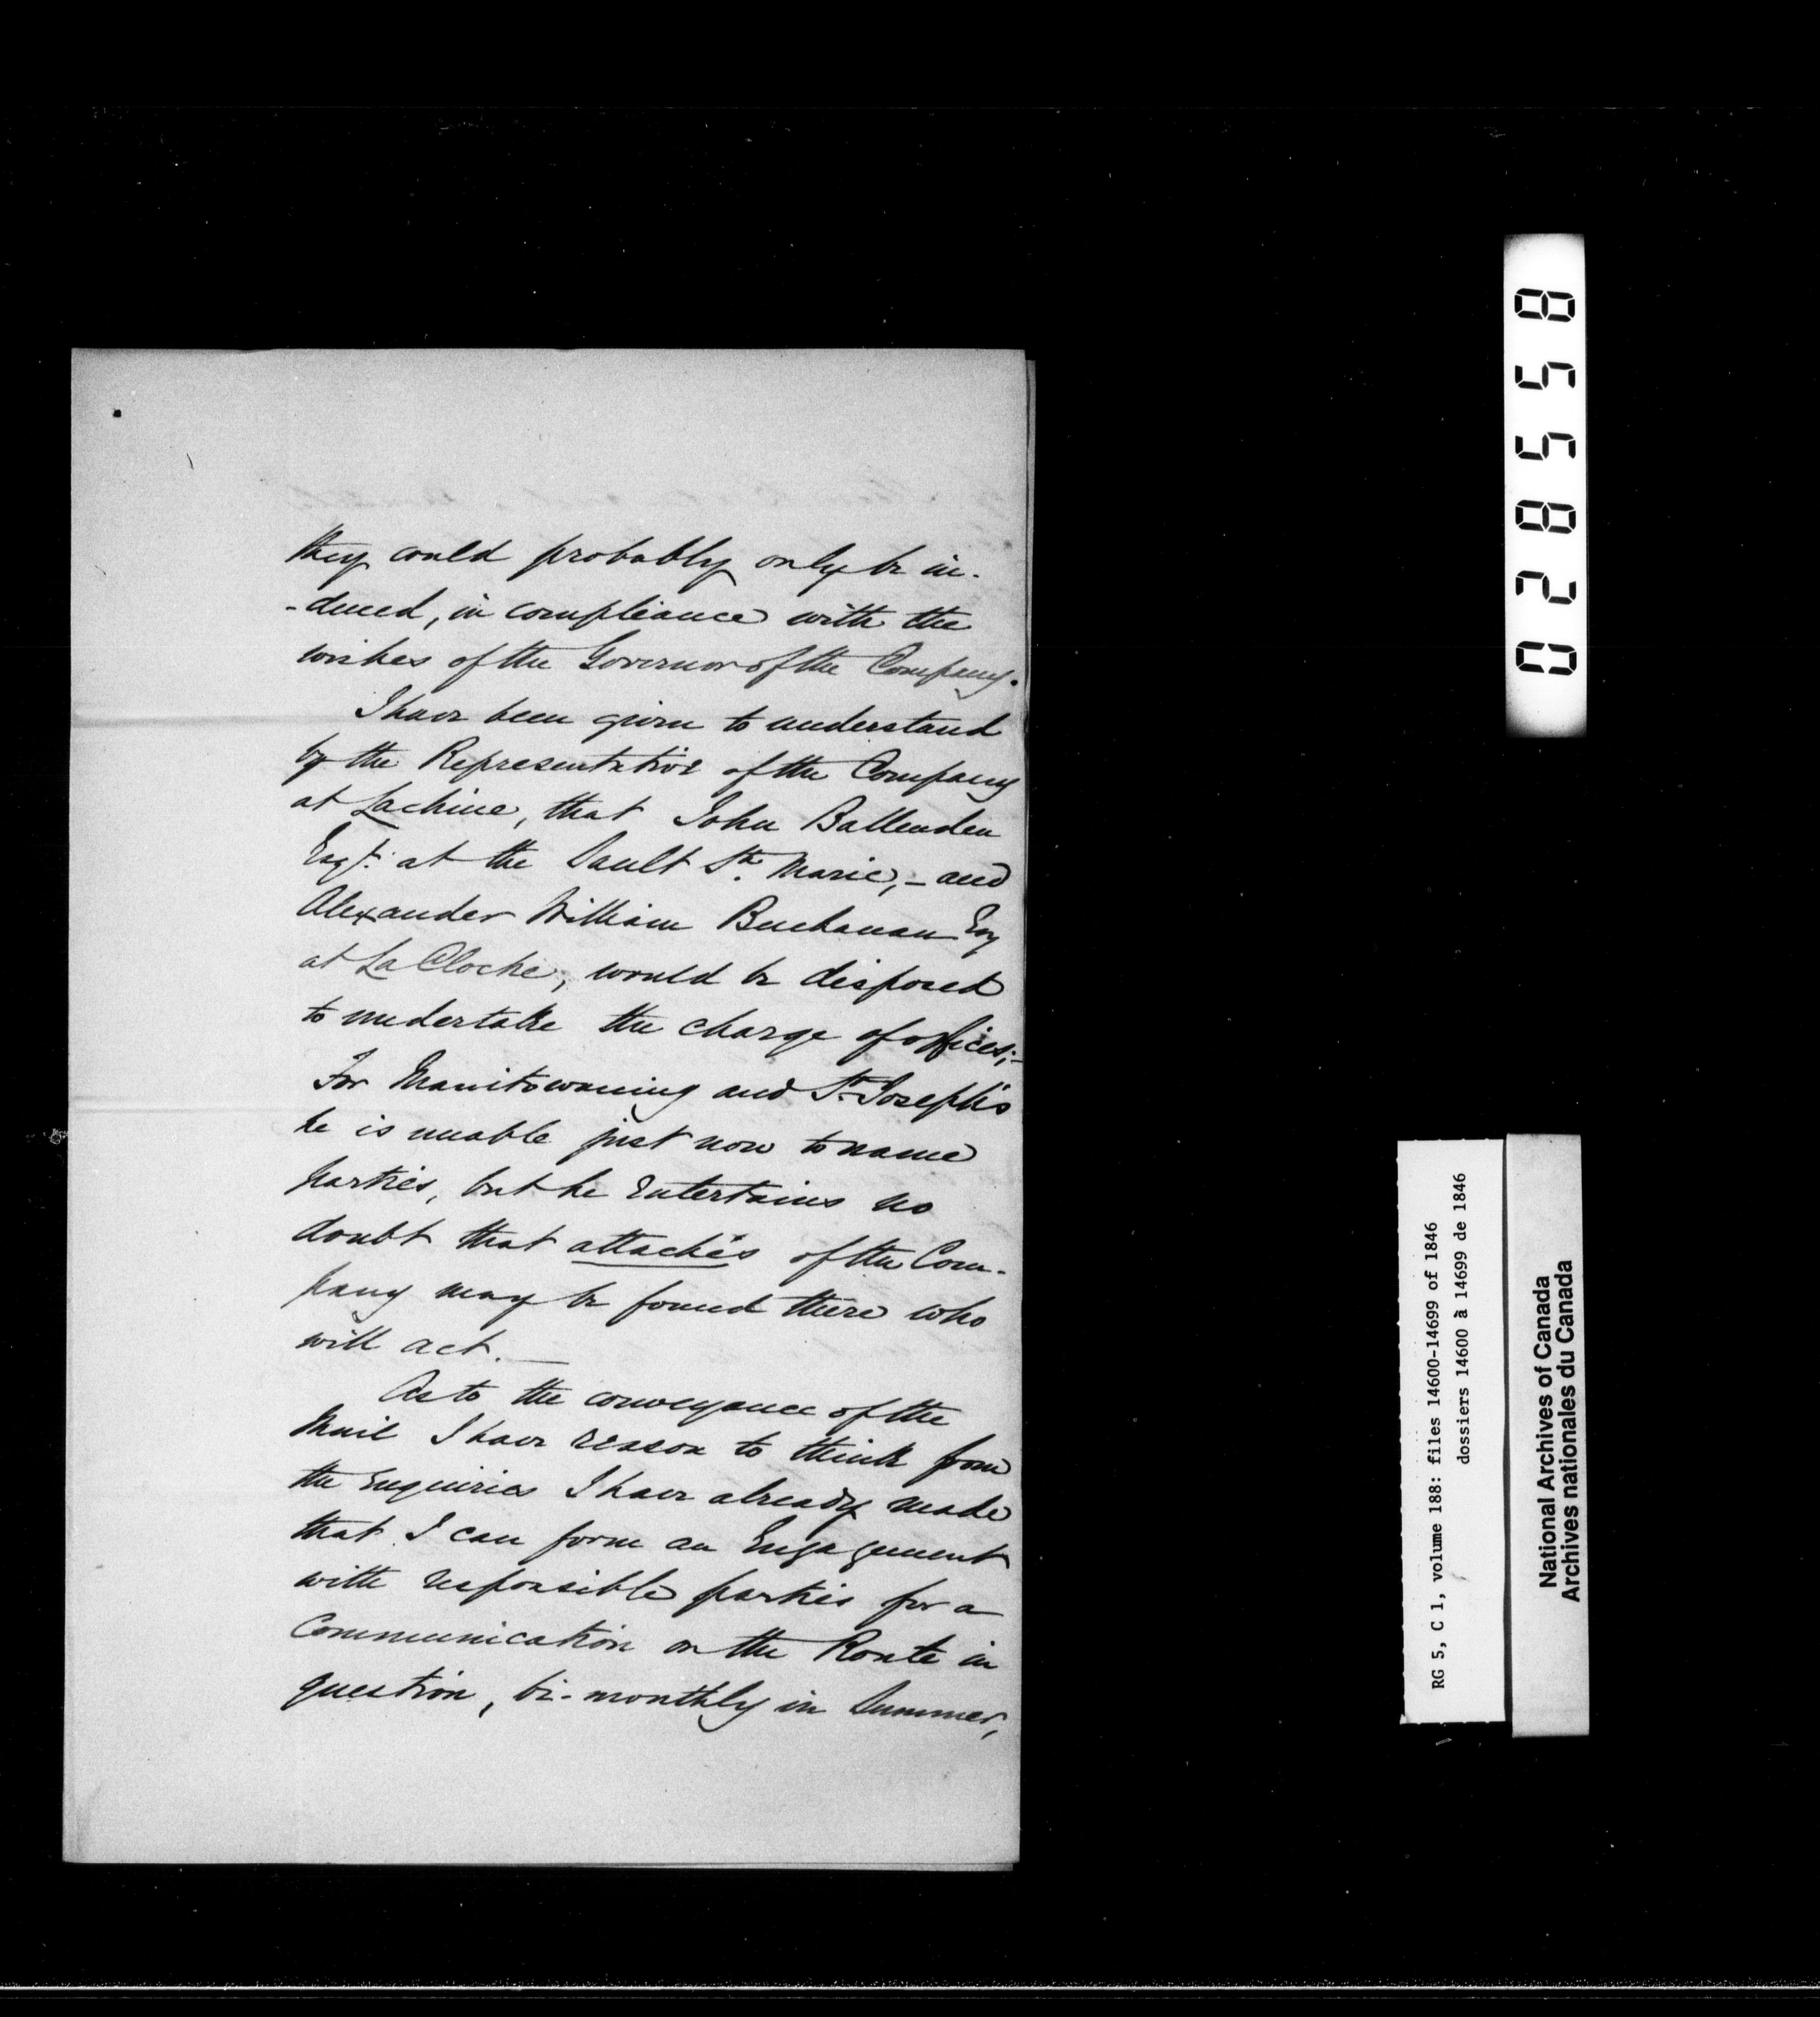 they could probably only be in-
-duced, in compliance with the
wishes of the Governor of the Company.
I have been given to understand
by the Representative of the Company
at Lachine, that John Ballenden
Esqr. at the Sault Ste. Marie, - and
Alexander William Buchanan Esq
at La Cloche, would be disposed
to undertake the charge of offices;-
For Manitowaning and St. Joseph's
he is unable just now to name
parties, but he entertains no
doubt that attachés of the Com-
pany may be found there who
will act.—
As to the conveyance of the
Mail I have reason to think from
the enquiries I have already made
that I can form an Engagement
with responsible parties for a
Communication on the Route in
question, bi-monthly in Summer,
028558
RG 5, C 1, volume 188: files 14600-14699 of 1846
dossiers 14600 à 14699 de 1846
National Archives of Canada
Archives nationales du Canada